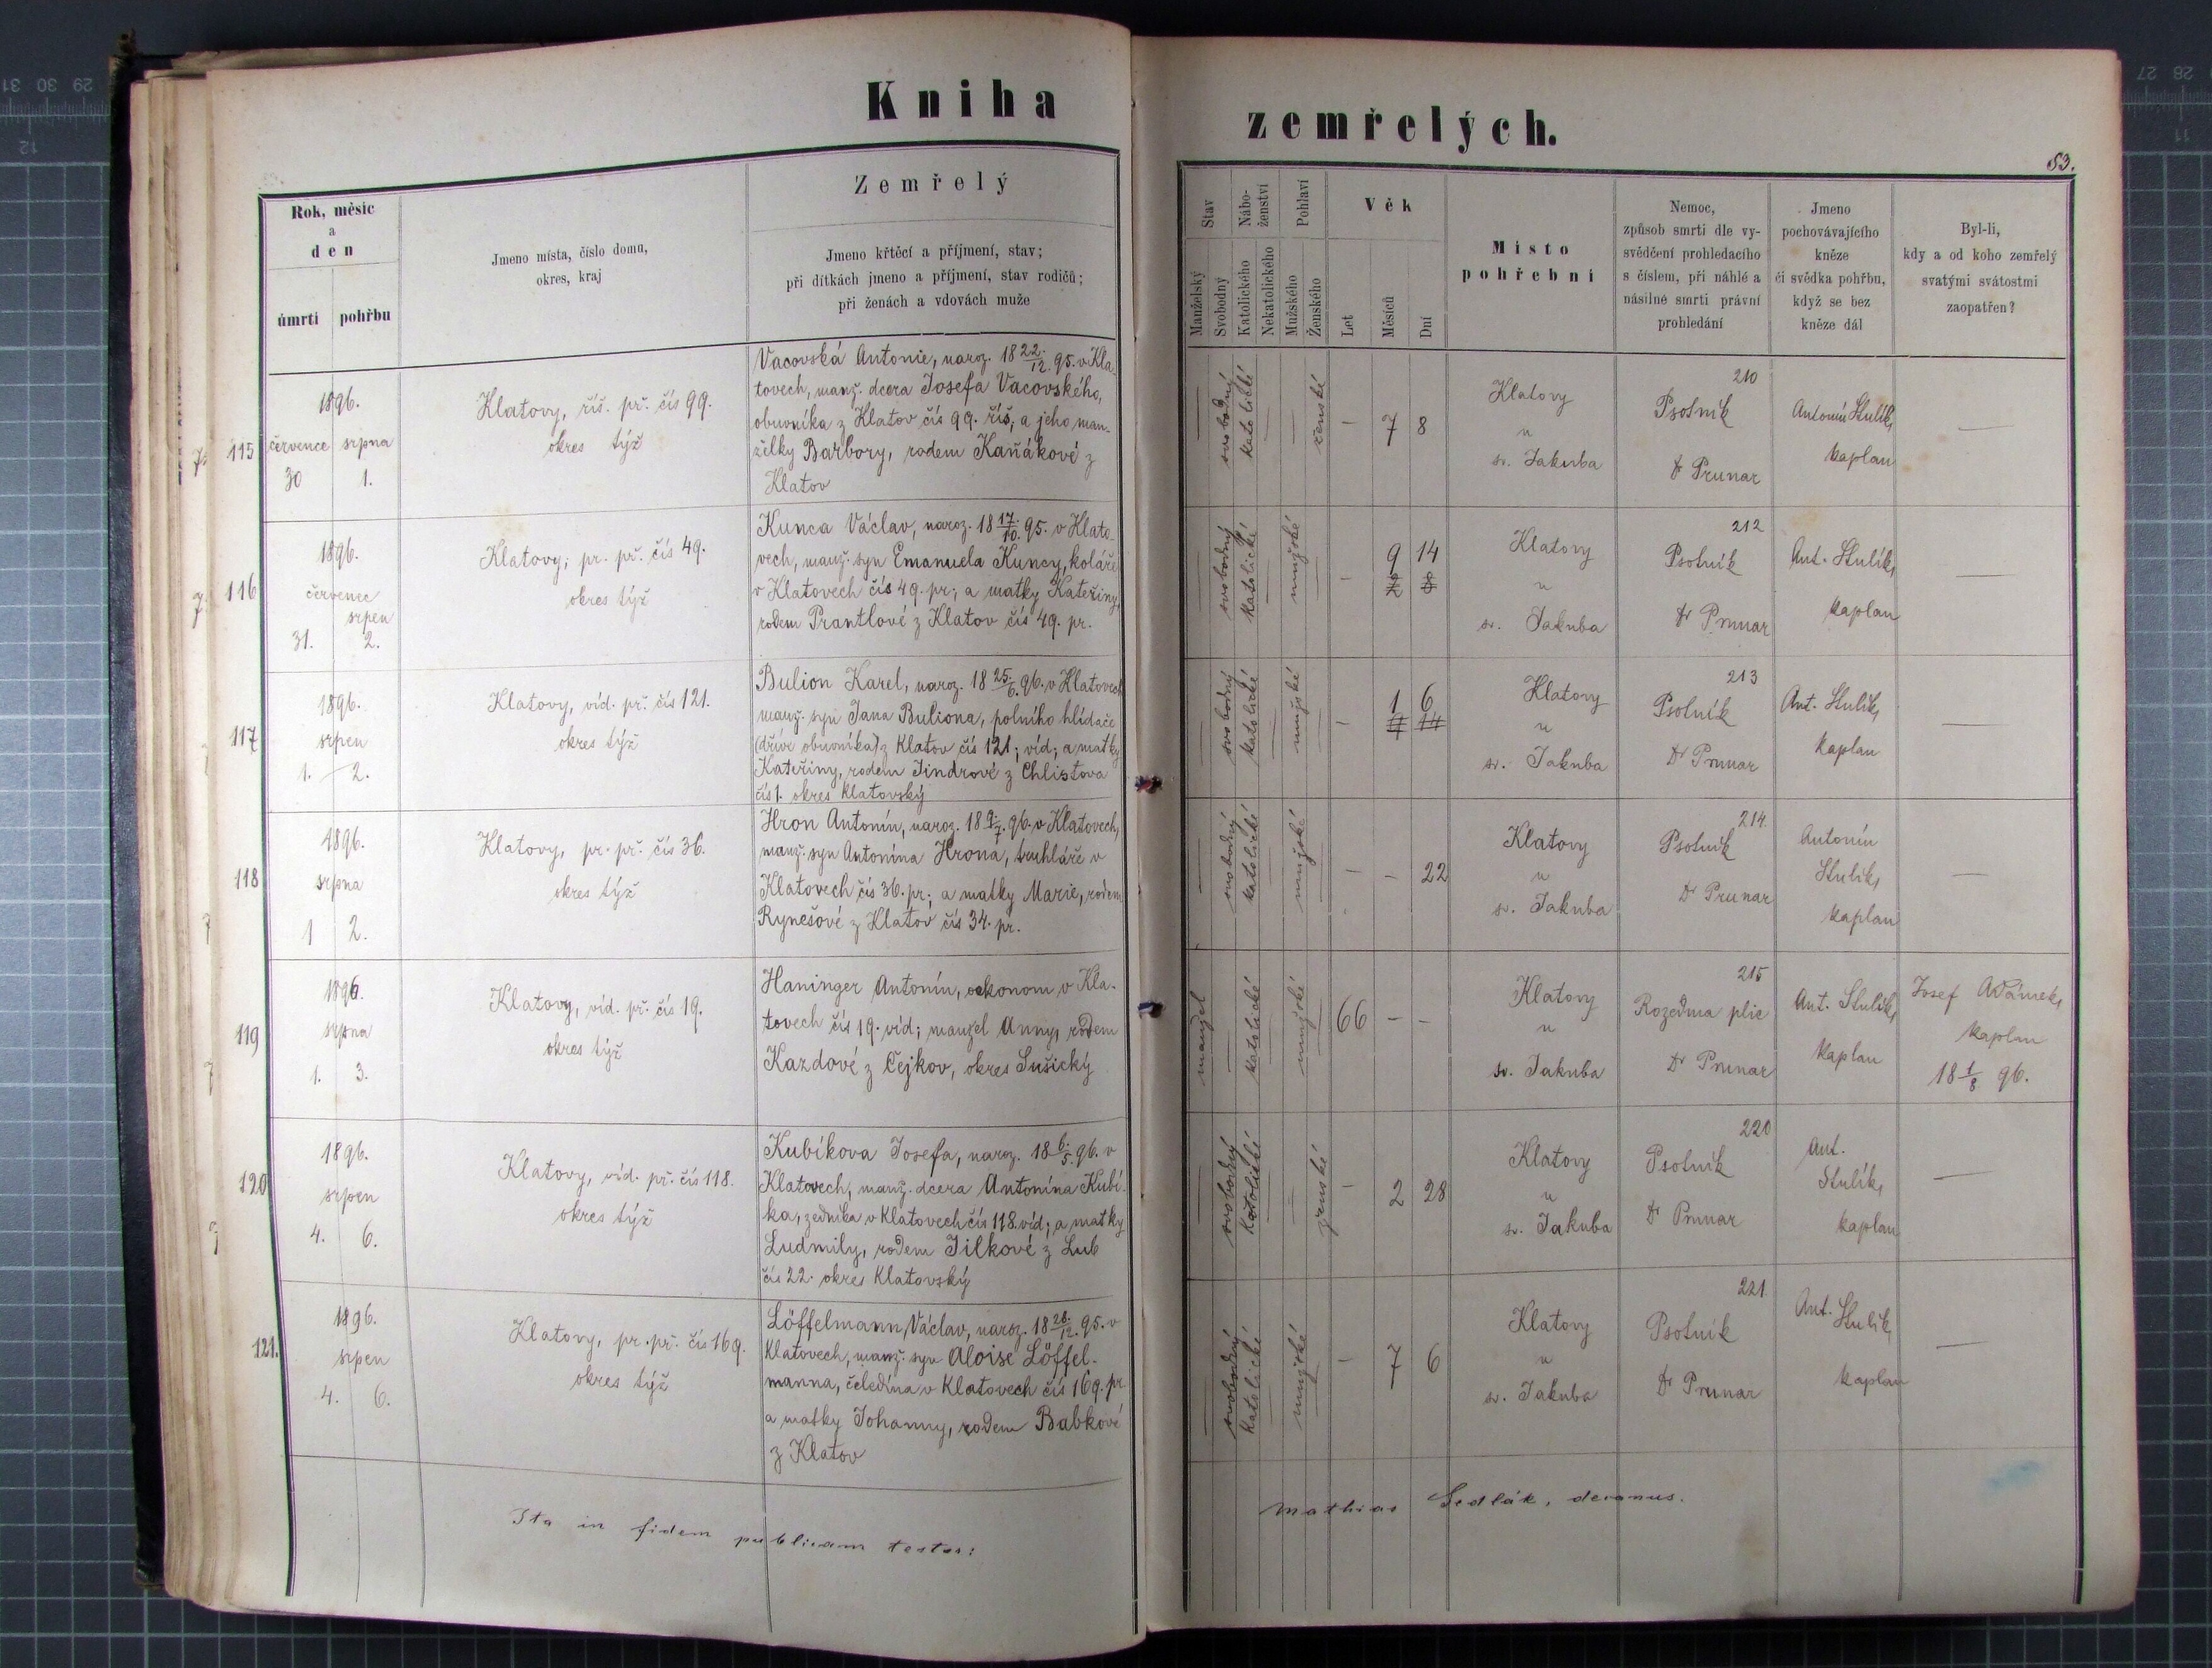 Kniha zemřelých.
53.
Rok, měsíc
a
den
úmrtí pohřbu
Jmeno místa, číslo domu,
okres, kraj
Zemřelý
Jmeno křtěcí a příjmení, stav;
při dítkách jmeno a příjmení, stav rodičů;
při ženách a vdovách muže
Stav
Manželský
Svobodný
Nábo-
ženství
Katolického
Nekatolického
Pohlaví
Mužského
Ženského
Věk
Let
Měsíců
Dní
Místo
pohřební
Nemoc,
způsob smrti dle vy-
svědčení prohledacího
s číslem, při náhlé a
násilné smrti právní
prohledání
Jmeno
pochovávajícího
kněze
či svědka pohřbu,
když se bez
kněze dál
Byl-li,
kdy a od koho zemřelý
svatými svátostmi
zaopatřen?
115
1896.
července srpna
30 1.
Klatovy, říš. př. čís 99.
okres týž
Vacovská Antonie, naroz. 18 22./12. 95. v Kla-
tovech, manž. dcera Josefa Vacovského,
obuvníka z Klatov čís 99. říš, a jeho man-
želky Barbory, rodem Kaňákové z
Klatov
— svobodný katolické — — ženské
- 7 8
Klatovy
u
sv. Jakuba
210
Psotník
Dr Prunar
Antonín Stulík,
kaplan
—
116
1896.
červenec
srpen
31. 2.
Klatovy; pr. př. čís 49.
okres týž
Kunca Václav, naroz. 18 17./10. 95. v Klato-
vech, manž. syn Emanuela Kuncy, koláře
v Klatovech čís 49. pr; a matky Kateřiny,
rodem Prantlové z Klatov čís 49. pr.
— svobodný katolické — mužské —
- 9 14
2 8
Klatovy
u
sv. Jakuba
212
Psotník
Dr Prunar
Ant. Stulík,
kaplan
—
117
1896.
srpen
1. 2.
Klatovy, víd. př. čís 121.
okres týž
Bulion Karel, naroz. 18 25./6. 96. v Klatovech
manž. syn Jana Buliona, polního hlídače
(dříve obuvníka) z Klatov čís 121; víd; a matky
Kateřiny, rodem Jindrové z Chlistova
čís 1. okres Klatovský
— svobodný katolické — mužské —
- 1 6
Klatovy
u
sv. Jakuba
213
Psotník
Dr Prunar
Ant. Stulík,
kaplan
—
118
1896.
srpna
1 2.
Klatovy, pr. př. čís 36.
okres týž
Hron Antonín, naroz. 18 9./7. 96. v Klatovech,
manž. syn Antonína Hrona, truhláře v
Klatovech čís 36. pr; a matky Marie, rodem
Rynešové z Klatov čís 34. pr.
— svobodný katolické — mužské —
- - 22
Klatovy
u
sv. Jakuba
214.
Psotník
Dr Prunar
Antonín
Stulík,
kaplan
—
119
1896.
srpna
1. 3.
Klatovy, víd. př. čís 19.
okres týž
Haninger Antonín, oekonom v Kla-
tovech čís 19. víd; manžel Anny, rodem
Kazdové z Čejkov, okres Sušický
manžel — katolické — mužské —
66 - -
Klatovy
u
sv. Jakuba
215
Rozedma plic
Dr Prunar
Ant. Stulík,
kaplan
Josef Adámek,
kaplan
18 1/8 96.
120
1896.
srpen
4. 6.
Klatovy, víd. př. čís 118.
okres týž
Kubíkova Josefa, naroz. 18 6./5. 96. v
Klatovech, manž. dcera Antonína Kubí-
ka, zedníka v Klatovech čís 118. víd; a matky
Ludmily, rodem Jílkové z Lub
čís 22. okres Klatovský
— svobodný katolické — — ženské
- 2 28
Klatovy
u
sv. Jakuba
220
Psotník
Dr Prunar
Ant.
Stulík,
kaplan
—
121.
1896.
srpen
4. 6.
Klatovy, pr. př. čís 169.
okres týž
Löffelmann Václav, naroz. 18 28./12. 95. v
Klatovech, manž. syn Aloise Löffel-
manna, čeledína v Klatovech čís 169. pr
a matky Johanny, rodem Babkové
z Klatov
— svobodný katolické — mužské —
- 7 6
Klatovy
u
sv. Jakuba
221
Psotník
Dr Prunar
Ant. Stulík,
kaplan
—
Ita in fidem publicam testor:
Mathias Sedlák, decanus.